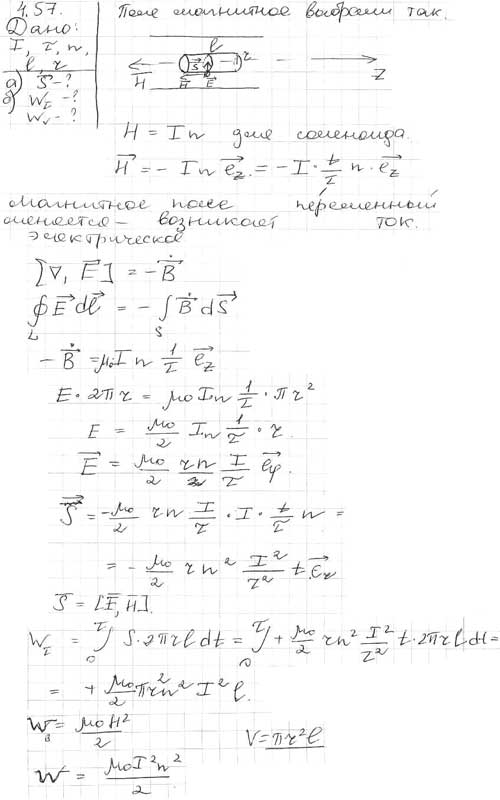 4.57.
Дано:
I, τ, n,
l, r
а) S⃗ -?
б) W_Σ -?
W_V -?
Поле магнитное выбрали так.
l
r
S⃗
H⃗
H⃗
E⃗
Z
H = In для соленоида.
H⃗ = - In e⃗_z = - I · t/τ n · e⃗_z
Магнитное поле переменный
меняется - возникает ток.
электрическое
[∇, E⃗] = -Ḃ⃗
∮_L E⃗ dl⃗ = - ∫_S Ḃ⃗ dS⃗
- Ḃ⃗ = μ₀ I n 1/τ e⃗_z
E · 2πr = μ₀ I n 1/τ · πr²
E = μ₀/2 I n 1/τ · r.
E⃗ = μ₀/2 rn I/τ e⃗_φ.
S⃗ = -μ₀/2 rn I/τ · I · t/τ n =
= - μ₀/2 r n² I²/τ² t e⃗_r
S⃗ = [E⃗, H⃗].
W_Σ = ∫₀^τ S · 2πrl dt = ∫₀^τ + μ₀/2 rn² I²/τ² t · 2πrl dt =
= + μ₀/2 πr²n² I² l.
w_B = μ₀H²/2
V = πr²l
w = μ₀I²n²/2